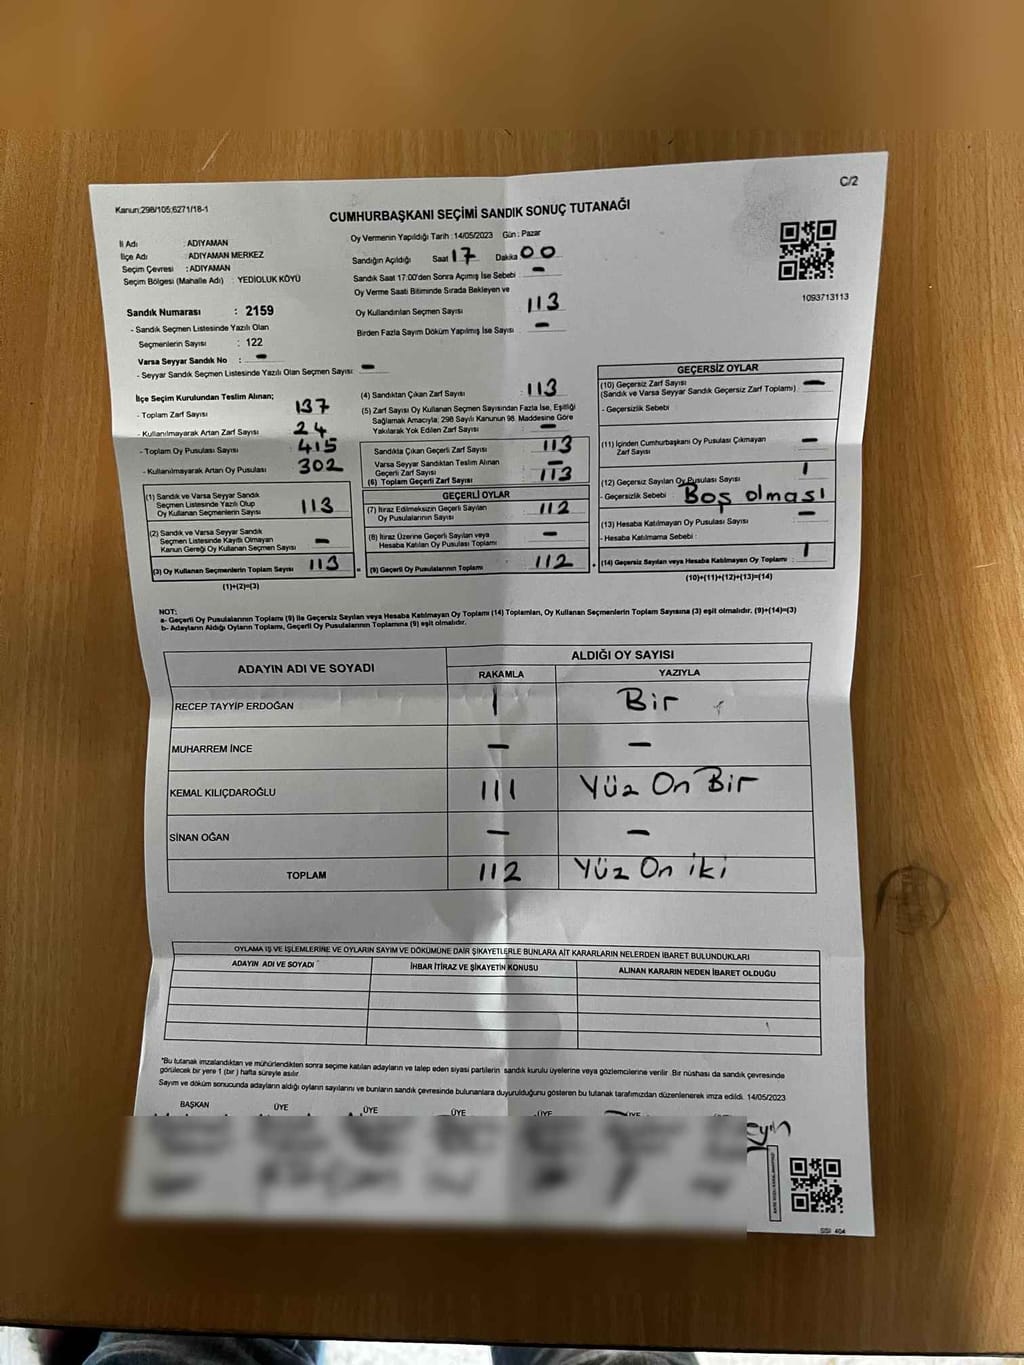 Kanun;298/105;6271/18-1
C/2
CUMHURBAŞKANI SEÇİMİ SANDIK SONUÇ TUTANAĞI
1093713113
İl Adı : ADIYAMAN
İlçe Adı : ADIYAMAN MERKEZ
Seçim Çevresi : ADIYAMAN
Seçim Bölgesi (Mahalle Adı) : YEDİOLUK KÖYÜ
Sandık Numarası : 2159
- Sandık Seçmen Listesinde Yazılı Olan
Seçmenlerin Sayısı : 122
Varsa Seyyar Sandık No : -
- Seyyar Sandık Seçmen Listesinde Yazılı Olan Seçmen Sayısı: -
Oy Vermenin Yapıldığı Tarih : 14/05/2023 Gün : Pazar
Sandığın Açıldığı Saat 17 Dakika 00
Sandık Saat 17:00'den Sonra Açımış İse Sebebi : -
Oy Verme Saati Bitiminde Sırada Bekleyen ve
Oy Kullandırılan Seçmen Sayısı : 113
Birden Fazla Sayım Döküm Yapılmış İse Sayısı : -
İlçe Seçim Kurulundan Teslim Alınan;
- Toplam Zarf Sayısı : 137
- Kullanılmayarak Artan Zarf Sayısı : 24
- Toplam Oy Pusulası Sayısı : 415
- Kullanılmayarak Artan Oy Pusulası : 302
(1) Sandık ve Varsa Seyyar Sandık
Seçmen Listesinde Yazılı Olup
Oy Kullanan Seçmenlerin Sayısı : 113
(2) Sandık ve Varsa Seyyar Sandık
Seçmen Listesinde Kayıtlı Olmayan
Kanun Gereği Oy Kullanan Seçmen Sayısı : -
(3) Oy Kullanan Seçmenlerin Toplam Sayısı : 113
(1)+(2)=(3)
(4) Sandıktan Çıkan Zarf Sayısı : 113
(5) Zarf Sayısı Oy Kullanan Seçmen Sayısından Fazla İse, Eşitliği
Sağlamak Amacıyla; 298 Sayılı Kanunun 98. Maddesine Göre
Yakılarak Yok Edilen Zarf Sayısı : -
Sandıkta Çıkan Geçerli Zarf Sayısı : 113
Varsa Seyyar Sandıktan Teslim Alınan
Geçerli Zarf Sayısı : -
(6) Toplam Geçerli Zarf Sayısı : 113
GEÇERLİ OYLAR
(7) İtiraz Edilmeksizin Geçerli Sayılan
Oy Pusulalarının Sayısı : 112
(8) İtiraz Üzerine Geçerli Sayılan veya
Hesaba Katılan Oy Pusulası Toplamı : -
= (9) Geçerli Oy Pusulalarının Toplamı : 112 +
GEÇERSİZ OYLAR
(10) Geçersiz Zarf Sayısı
(Sandık ve Varsa Seyyar Sandık Geçersiz Zarf Toplamı) : -
- Geçersizlik Sebebi :
(11) İçinden Cumhurbaşkanı Oy Pusulası Çıkmayan
Zarf Sayısı : -
(12) Geçersiz Sayılan Oy Pusulası Sayısı : 1
- Geçersizlik Sebebi : Boş olması
(13) Hesaba Katılmayan Oy Pusulası Sayısı : -
- Hesaba Katılmama Sebebi :
(14) Geçersiz Sayılan veya Hesaba Katılmayan Oy Toplamı : 1
(10)+(11)+(12)+(13)=(14)
NOT;
a- Geçerli Oy Pusulalarının Toplamı (9) ile Geçersiz Sayılan veya Hesaba Katılmayan Oy Toplamı (14) Toplamları, Oy Kullanan Seçmenlerin Toplam Sayısına (3) eşit olmalıdır. (9)+(14)=(3)
b- Adayların Aldığı Oyların Toplamı, Geçerli Oy Pusulalarının Toplamına (9) eşit olmalıdır.
ADAYIN ADI VE SOYADI ALDIĞI OY SAYISI
RAKAMLA YAZIYLA
RECEP TAYYİP ERDOĞAN 1 Bir
MUHARREM İNCE - -
KEMAL KILIÇDAROĞLU 111 Yüz On Bir
SİNAN OĞAN - -
TOPLAM 112 Yüz On iki
OYLAMA İŞ VE İŞLEMLERİNE VE OYLARIN SAYIM VE DÖKÜMÜNE DAİR ŞİKAYETLERLE BUNLARA AİT KARARLARIN NELERDEN İBARET BULUNDUKLARI
ADAYIN ADI VE SOYADI İHBAR İTİRAZ VE ŞİKAYETİN KONUSU ALINAN KARARIN NEDEN İBARET OLDUĞU
*Bu tutanak imzalandıktan ve mühürlendikten sonra seçime katılan adayların ve talep eden siyasi partilerin sandık kurulu üyelerine veya gözlemcilerine verilir. Bir nüshası da sandık çevresinde
görülecek bir yere 1 (bir) hafta süreyle asılır.
Sayım ve döküm sonucunda adayların aldığı oyların sayılarını ve bunların sandık çevresinde bulunanlara duyurulduğunu gösteren bu tutanak tarafımızdan düzenlenerek imza edildi. 14/05/2023
BAŞKAN ÜYE ÜYE ÜYE ÜYE ÜYE
SSI 404